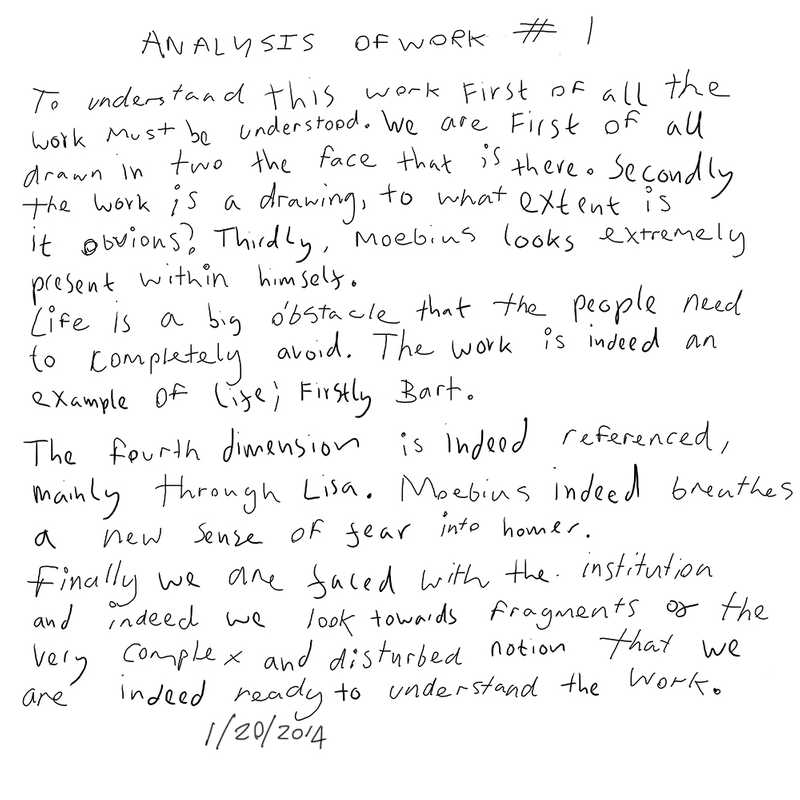 ANALYSIS OF WORK # 1
To understand this work First of all the
work Must be understood. We are First of all
drawn in two the face that is there. Secondly
the work is a drawing, to what extent is
it obvious? Thirdly, Moebius looks extremely
present within himself.
Life is a big obstacle that the people need
to completely avoid. The work is indeed an
example of life; Firstly Bart.
The fourth dimension is indeed referenced,
mainly through Lisa. Moebius indeed breathes
a new sense of fear into homer.
Finally we are faced with the institution
and indeed we look towards fragments of the
very complex and disturbed notion that we
are indeed ready to understand the work.
1/20/2014